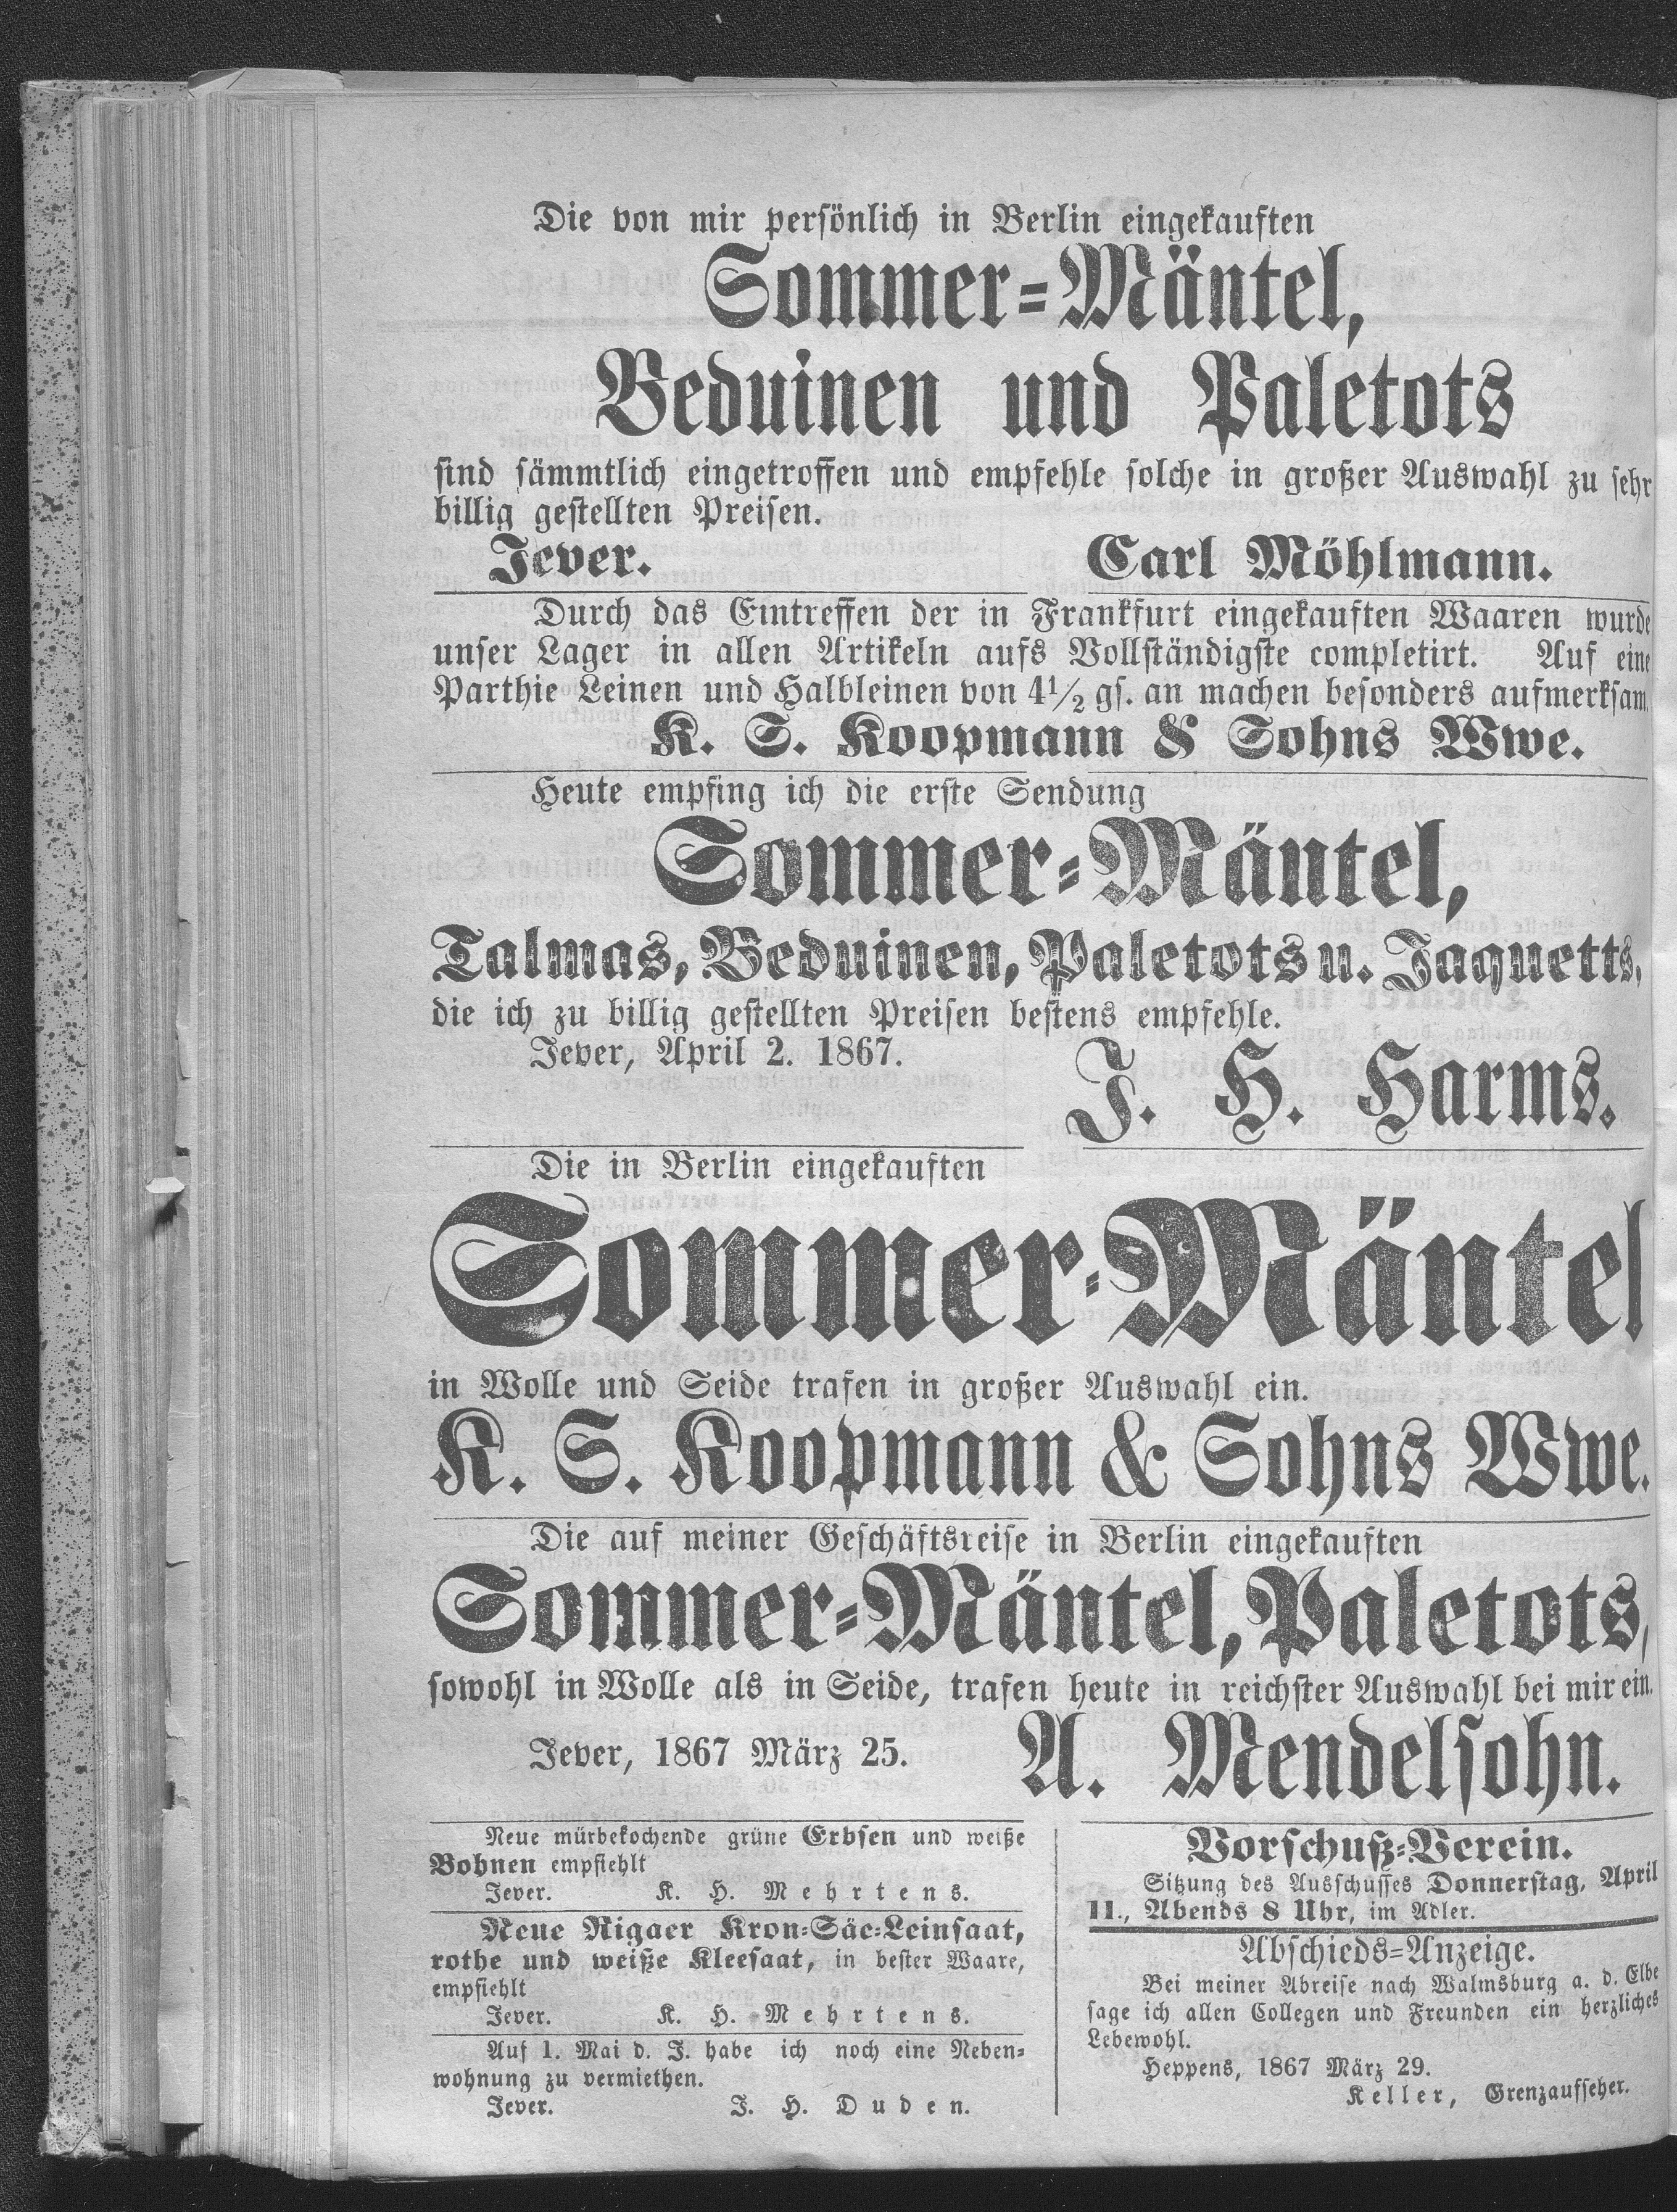 Die von mir persönlich in Berlin eingekauften
Sommer=Mäntel,
Beduinen und Paletots
sind sämmtlich eingetroffen und empfehle solche in großer Auswahl zu sehr
billig gestellten Preisen.
Jever. Carl Möhlmann.
Durch das Eintreffen der in Frankfurt eingekauften Waaren wurde
unser Lager in allen Artikeln aufs Vollständigste completirt. Auf eine
Parthie Leinen und Halbleinen von 4½ gs. an machen besonders aufmerksam.
K. S. Koopmann & Sohns Wwe.
Heute empfing ich die erste Sendung
Sommer=Mäntel,
Talmas, Beduinen, Paletots u. Jaquetts,
die ich zu billig gestellten Preisen bestens empfehle.
Jever, April 2. 1867.
J. H. Harms.
Die in Berlin eingekauften
Sommer=Mäntel
in Wolle und Seide trafen in großer Auswahl ein.
K. S. Koopmann & Sohns Wwe.
Die auf meiner Geschäftsreise in Berlin eingekauften
Sommer=Mäntel, Paletots,
sowohl in Wolle als in Seide, trafen heute in reichster Auswahl bei mir ein.
Jever, 1867 März 25. A. Mendelsohn.
Neue mürbekochende grüne Erbsen und weiße
Bohnen empfiehlt
Jever. K. H. Mehrtens.
Neue Rigaer Kron=Säe=Leinsaat,
rothe und weiße Kleesaat, in bester Waare,
empfiehlt
Jever. K. H. Mehrtens.
Auf 1. Mai d. J. habe ich noch eine Neben=
wohnung zu vermiethen.
Jever. J. H. Duden.
Vorschuß=Verein.
Sitzung des Ausschusses Donnerstag, April
11., Abends 8 Uhr, im Adler.
Abschieds=Anzeige.
Bei meiner Abreise nach Walmsburg a. d. Elbe
sage ich allen Collegen und Freunden ein herzliches
Lebewohl.
Heppens, 1867 März 29.
Keller, Grenzaufseher.